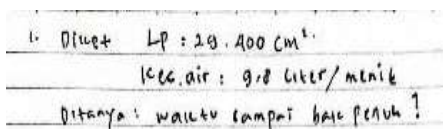 1. Diket LP : 29.400 cm².
Kec. air : 9,8 liter/menit
Ditanya : waktu sampai bak penuh !